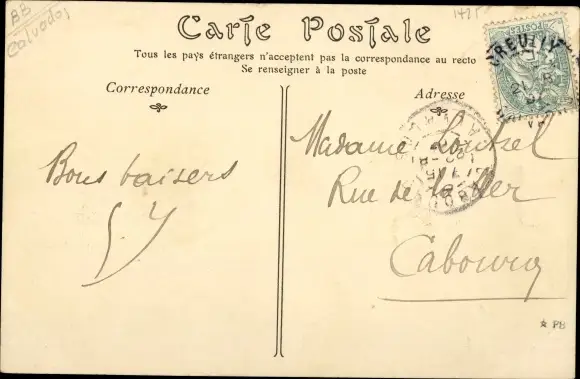 BB
Calvados
1425
Carte Postale
Tous les pays étrangers n'acceptent pas la correspondance au recto
Se renseigner à la poste
Correspondance
Adresse
Bons baisers
Madame
Rue de la Mer
Cabourg
REUILLY
POSTES
CALVADOS
★ PB